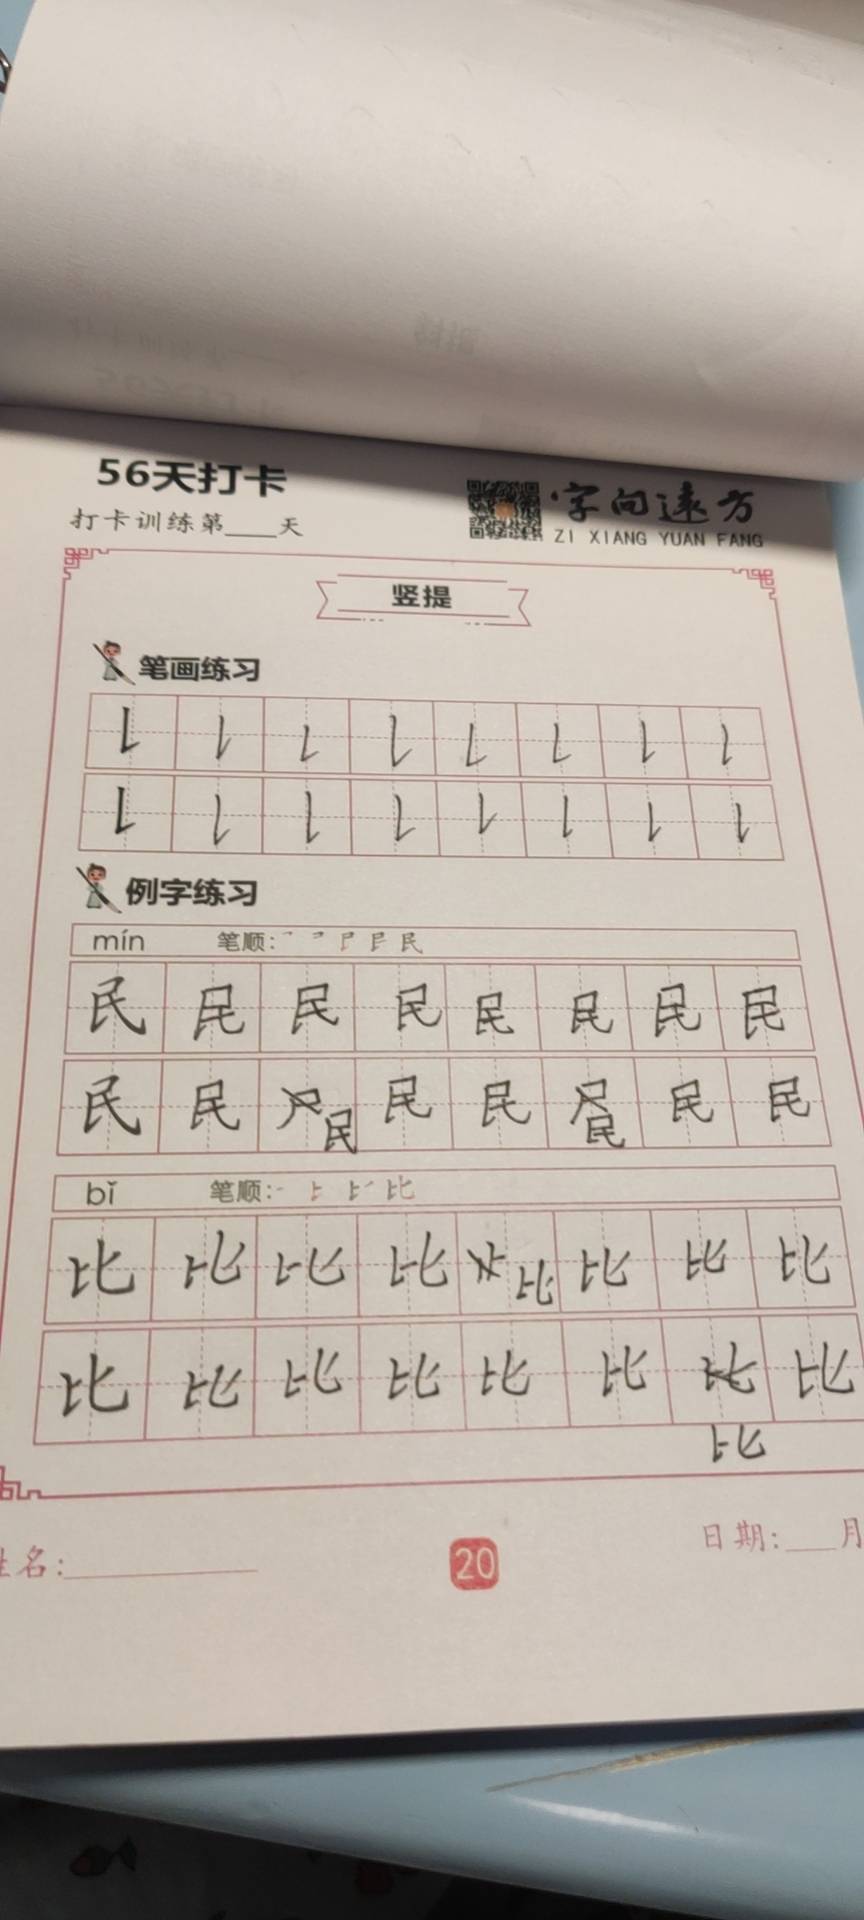 56天打卡
打卡训练第____天
字向远方
ZI XIANG YUAN FANG
竖提
笔画练习
例字练习
mín 笔顺:
民 民 民 民 民 民 民 民
民 民 民 民 民 民 民 民
bǐ 笔顺:
比 比 比 比 比 比 比 比
比 比 比 比 比 比 比 比
比
姓名:
20
日期:___月